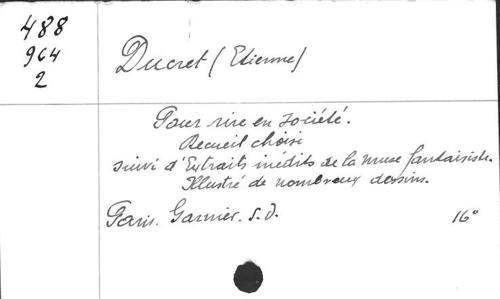 488
964
2
Ducret (Etienne)
Pour rire en société.
Recueil choisi
suivi d'Extraits inédits de la muse fantaisiste.
Illustré de nombreux dessins.
Paris. Garnier. s.d. 16°